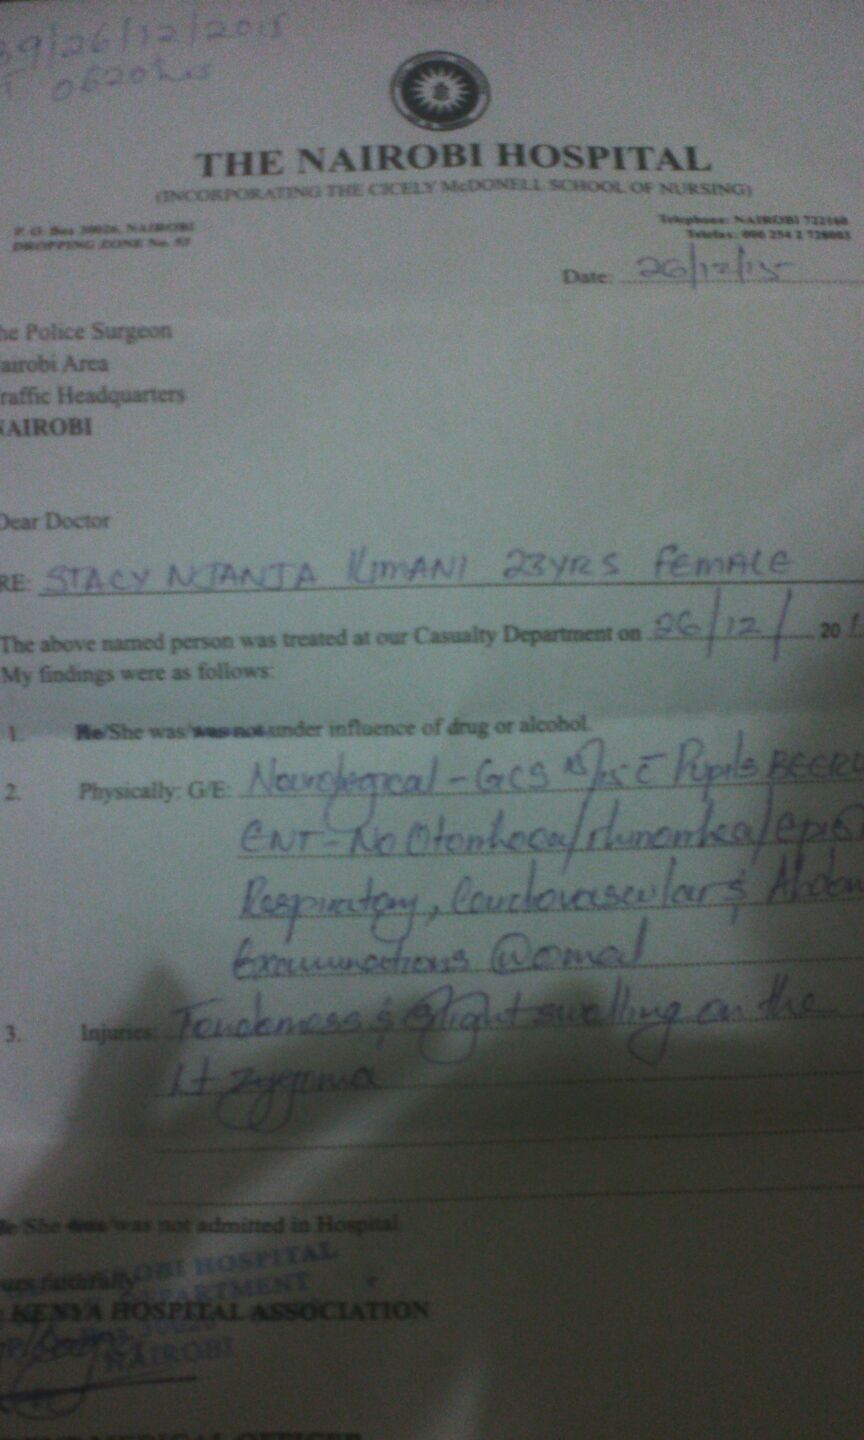 39/26/12/2015
0620hrs
THE NAIROBI HOSPITAL
(INCORPORATING THE CICELY McDONELL SCHOOL OF NURSING)
P. O. Box 30026, NAIROBI
DROPPING ZONE No. 53
Telephone: NAIROBI 722160
Telefax: 000 254 2 728003
Date: 26/12/15
he Police Surgeon
airobi Area
raffic Headquarters
NAIROBI
Dear Doctor
RE: STACY NJANJA KIMANI 23YRS FEMALE
The above named person was treated at our Casualty Department on 26/12/ 20 1
My findings were as follows:
1. He/She was/was not under influence of drug or alcohol.
2. Physically: G/E: Neurological - GCS 15/15 c̄ Pupils BEERL
ENT - No Otorrhoea/rhinorrhea/epis
Respiratory, Cardiovascular & Abdom
Examinations Normal
3. Injuries: Tenderness & Slight swelling on the
Lt zygoma
He/She was/was not admitted in Hospital
urs faithfully
NAIROBI HOSPITAL
DEPARTMENT
KENYA HOSPITAL ASSOCIATION
NAIROBI
MEDICAL OFFICER